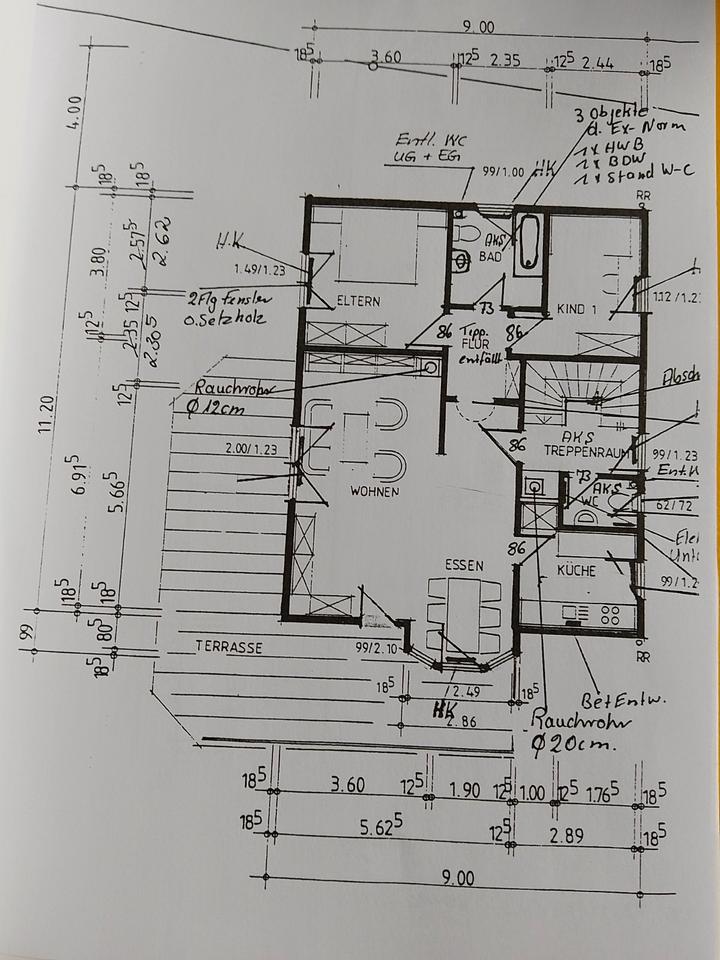 9.00
18⁵ 3.60 12⁵ 2.35 12⁵ 2.44 18⁵
3 Objekte
d. Ex-Norm
1x HWB
1x BDW
1x Stand W-C
Entl. WC
UG + EG
99/1.00
HK
RR
4.00
18⁵
18⁵
3.80
2.57⁵
2.62
12⁵
12⁵
2.35
2.30⁵
12⁵
11.20
6.91⁵
5.66⁵
18⁵
18⁵
99
80⁵
18⁵
H.K
1.49/1.23
2Flg Fenster
o. Setzholz
ELTERN
AKS
BAD
KIND 1
1.12/1.2
73
86
Tipp.
FLUR
entfällt
86
Rauchrohr
Ø 12cm
Absch
2.00/1.23
86
AKS
TREPPENRAUM
99/1.23
Entl.
73
AKS
WC
62/72
WOHNEN
86
ESSEN
KÜCHE
Ele
Unt
99/1.2
TERRASSE
99/2.10
RR
18⁵ /2.49 18⁵
HK
2.86
Bet Entw.
Rauchrohr
Ø 20cm.
18⁵ 3.60 12⁵ 1.90 12⁵ 1.00 12⁵ 1.76⁵ 18⁵
18⁵ 5.62⁵ 12⁵ 2.89 18⁵
9.00